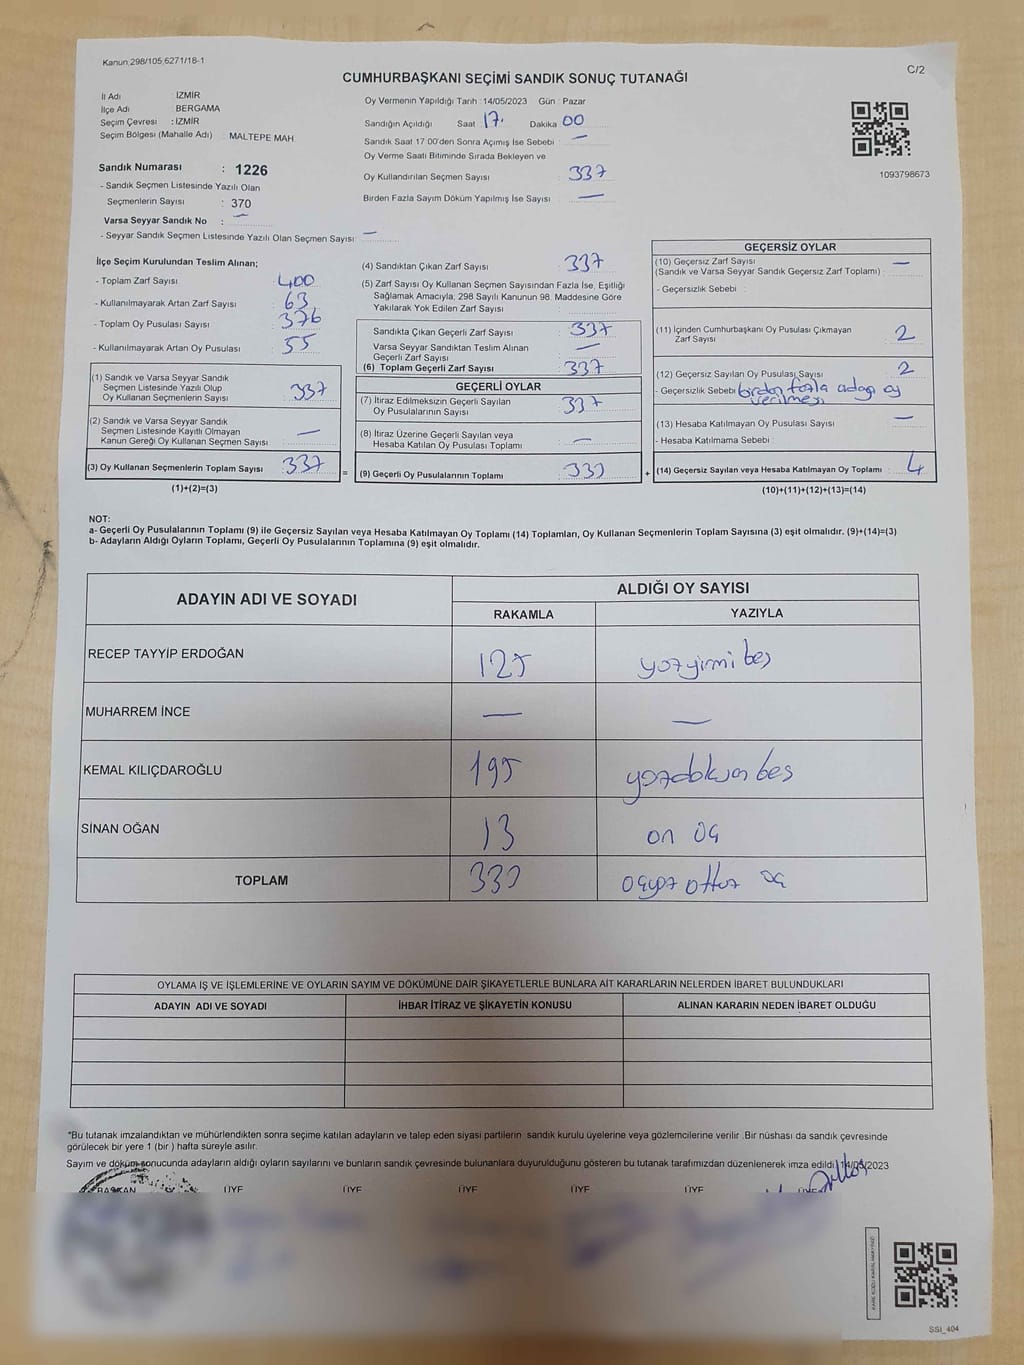 Kanun,298/105,6271/18-1
C/2
CUMHURBAŞKANI SEÇİMİ SANDIK SONUÇ TUTANAĞI
İl Adı : İZMİR
İlçe Adı : BERGAMA
Seçim Çevresi : İZMİR
Seçim Bölgesi (Mahalle Adı) : MALTEPE MAH.
Sandık Numarası : 1226
- Sandık Seçmen Listesinde Yazılı Olan
Seçmenlerin Sayısı : 370
Varsa Seyyar Sandık No : —
- Seyyar Sandık Seçmen Listesinde Yazılı Olan Seçmen Sayısı: —
Oy Vermenin Yapıldığı Tarih : 14/05/2023 Gün : Pazar
Sandığın Açıldığı Saat 17. Dakika 00
Sandık Saat 17:00'den Sonra Açımış İse Sebebi : —
Oy Verme Saati Bitiminde Sırada Bekleyen ve
Oy Kullandırılan Seçmen Sayısı : 337
Birden Fazla Sayım Döküm Yapılmış İse Sayısı : —
1093798673
İlçe Seçim Kurulundan Teslim Alınan;
- Toplam Zarf Sayısı : 400
- Kullanılmayarak Artan Zarf Sayısı : 63
- Toplam Oy Pusulası Sayısı : 376
- Kullanılmayarak Artan Oy Pusulası : 55
(1) Sandık ve Varsa Seyyar Sandık
Seçmen Listesinde Yazılı Olup
Oy Kullanan Seçmenlerin Sayısı : 337
(2) Sandık ve Varsa Seyyar Sandık
Seçmen Listesinde Kayıtlı Olmayan
Kanun Gereği Oy Kullanan Seçmen Sayısı : —
(3) Oy Kullanan Seçmenlerin Toplam Sayısı : 337
(1)+(2)=(3)
=
(4) Sandıktan Çıkan Zarf Sayısı : 337
(5) Zarf Sayısı Oy Kullanan Seçmen Sayısından Fazla İse, Eşitliği
Sağlamak Amacıyla; 298 Sayılı Kanunun 98. Maddesine Göre
Yakılarak Yok Edilen Zarf Sayısı :
Sandıkta Çıkan Geçerli Zarf Sayısı : 337
Varsa Seyyar Sandıktan Teslim Alınan
Geçerli Zarf Sayısı : —
(6) Toplam Geçerli Zarf Sayısı : 337
GEÇERLİ OYLAR
(7) İtiraz Edilmeksizin Geçerli Sayılan
Oy Pusulalarının Sayısı : 337
(8) İtiraz Üzerine Geçerli Sayılan veya
Hesaba Katılan Oy Pusulası Toplamı : —
(9) Geçerli Oy Pusulalarının Toplamı : 333
+
GEÇERSİZ OYLAR
(10) Geçersiz Zarf Sayısı
(Sandık ve Varsa Seyyar Sandık Geçersiz Zarf Toplamı) : —
- Geçersizlik Sebebi :
(11) İçinden Cumhurbaşkanı Oy Pusulası Çıkmayan
Zarf Sayısı : 2
(12) Geçersiz Sayılan Oy Pusulası Sayısı : 2
- Geçersizlik Sebebi : birden fazla adaya oy
verilmesi
(13) Hesaba Katılmayan Oy Pusulası Sayısı : —
- Hesaba Katılmama Sebebi :
(14) Geçersiz Sayılan veya Hesaba Katılmayan Oy Toplamı : 4
(10)+(11)+(12)+(13)=(14)
NOT:
a- Geçerli Oy Pusulalarının Toplamı (9) ile Geçersiz Sayılan veya Hesaba Katılmayan Oy Toplamı (14) Toplamları, Oy Kullanan Seçmenlerin Toplam Sayısına (3) eşit olmalıdır. (9)+(14)=(3)
b- Adayların Aldığı Oyların Toplamı, Geçerli Oy Pusulalarının Toplamına (9) eşit olmalıdır.
ADAYIN ADI VE SOYADI
ALDIĞI OY SAYISI
RAKAMLA YAZIYLA
RECEP TAYYİP ERDOĞAN 125 yüzyirmi beş
MUHARREM İNCE — —
KEMAL KILIÇDAROĞLU 195 yüzdoksan beş
SİNAN OĞAN 13 on üç
TOPLAM 333 üçyüz ottuz üç
OYLAMA İŞ VE İŞLEMLERİNE VE OYLARIN SAYIM VE DÖKÜMÜNE DAİR ŞİKAYETLERLE BUNLARA AİT KARARLARIN NELERDEN İBARET BULUNDUKLARI
ADAYIN ADI VE SOYADI İHBAR İTİRAZ VE ŞİKAYETİN KONUSU ALINAN KARARIN NEDEN İBARET OLDUĞU
*Bu tutanak imzalandıktan ve mühürlendikten sonra seçime katılan adayların ve talep eden siyasi partilerin sandık kurulu üyelerine veya gözlemcilerine verilir .Bir nüshası da sandık çevresinde
görülecek bir yere 1 (bir ) hafta süreyle asılır.
Sayım ve döküm sonucunda adayların aldığı oyların sayılarını ve bunların sandık çevresinde bulunanlara duyurulduğunu gösteren bu tutanak tarafımızdan düzenlenerek imza edildi. 14/05/2023
BAŞKAN ÜYE ÜYE ÜYE ÜYE ÜYE ÜYE
SSI_404